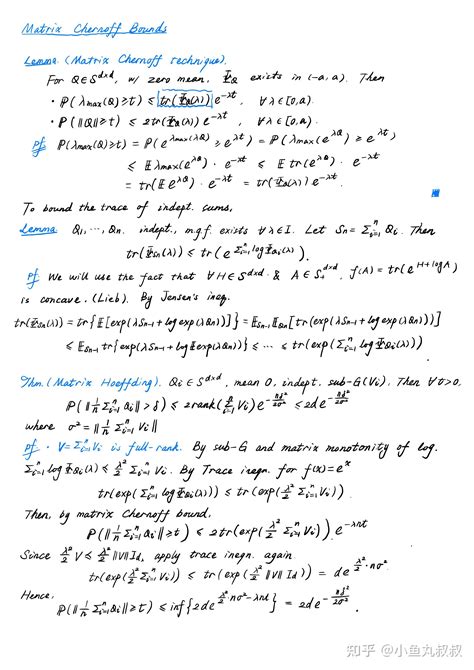 Matrix Chernoff Bounds
Lemma. (Matrix Chernoff technique).
For Q∈S^{d×d}, w/ zero mean, Ψ_Q exists in (-a,a). Then
· P(λmax(Q)≥t) ≤ tr(Ψ_Q(λ)) e^{-λt}, ∀λ∈[0,a).
· P(‖Q‖≥t) ≤ 2tr(Ψ_Q(λ)) e^{-λt}, ∀λ∈[0,a).
pf. P(λmax(Q)≥t) = P(e^{λmax(λQ)} ≥ e^{λt}) = P(λmax(e^{λQ}) ≥ e^{λt})
≤ E λmax(e^{λQ}) · e^{-λt} ≤ E tr(e^{λQ}) · e^{-λt}
= tr(E e^{λQ}) · e^{-λt} = tr(Ψ_Q(λ)) e^{-λt}.
To bound the trace of indept. sums,
Lemma. Q1, ···, Qn. indept., m.g.f. exists ∀λ∈I. Let Sn=Σ_{i=1}^n Qi. Then
tr(Ψ_{Sn}(λ)) ≤ tr(e^{Σ_{i=1}^n log Ψ_{Qi}(λ)}).
pf. We will use the fact that ∀H∈S^{d×d} & A∈S_+^{d×d}, f(A)=tr(e^{H+logA})
is concave. (Lieb). By Jensen's ineq.
tr(Ψ_{Sn}(λ)) = tr{E[exp(λSn-1+log exp(λQn))]} = E_{Sn-1}E_{Qn}[tr(exp(λSn-1+log exp(λQn)))]
≤ E_{Sn-1} tr{exp(λSn-1+log E exp(λQn))} ≤ ··· ≤ tr(exp(Σ_{i=1}^n log Ψ_{Qi}(λ)))
Thm. (Matrix Hoeffding). Qi∈S^{d×d}, mean 0, indept, sub-G(Vi), Then ∀δ>0,
P(‖1/n Σ_{i=1}^n Qi‖ > δ) ≤ 2rank(Σ_{i=1}^n Vi) e^{-nδ²/2σ²} ≤ 2d e^{-nδ²/2σ²}
where σ²=‖1/n Σ_{i=1}^n Vi‖
pf. · V=Σ_{i=1}^n Vi is full-rank. By sub-G and matrix monotonity of log.
Σ_{i=1}^n log Ψ_{Qi}(λ) ≼ λ²/2 Σ_{i=1}^n Vi. By Trace ineqn. for f(x)=e^x
tr(exp(Σ_{i=1}^n log Ψ_{Qi}(λ))) ≤ tr(exp(λ²/2 Σ_{i=1}^n Vi)).
Then, by matrix Chernoff bound,
P(‖1/n Σ_{i=1}^n Qi‖≥t) ≤ 2tr(exp(λ²/2 Σ_{i=1}^n Vi)).e^{-λnt}
Since λ²/2 V ≼ λ²/2 ‖V‖Id, apply trace ineqn. again
tr(exp(λ²/2 Σ_{i=1}^n Vi)) ≤ tr(exp(λ²/2 ‖V‖ Id)) = d e^{λ²/2·nσ²}
Hence,
P(‖1/n Σ_{i=1}^n Qi‖≥t) ≤ inf{2d e^{λ²/2·nσ²-λnt}} = 2d e^{-nδ²/2σ²}.
知乎 @小鱼丸叔叔